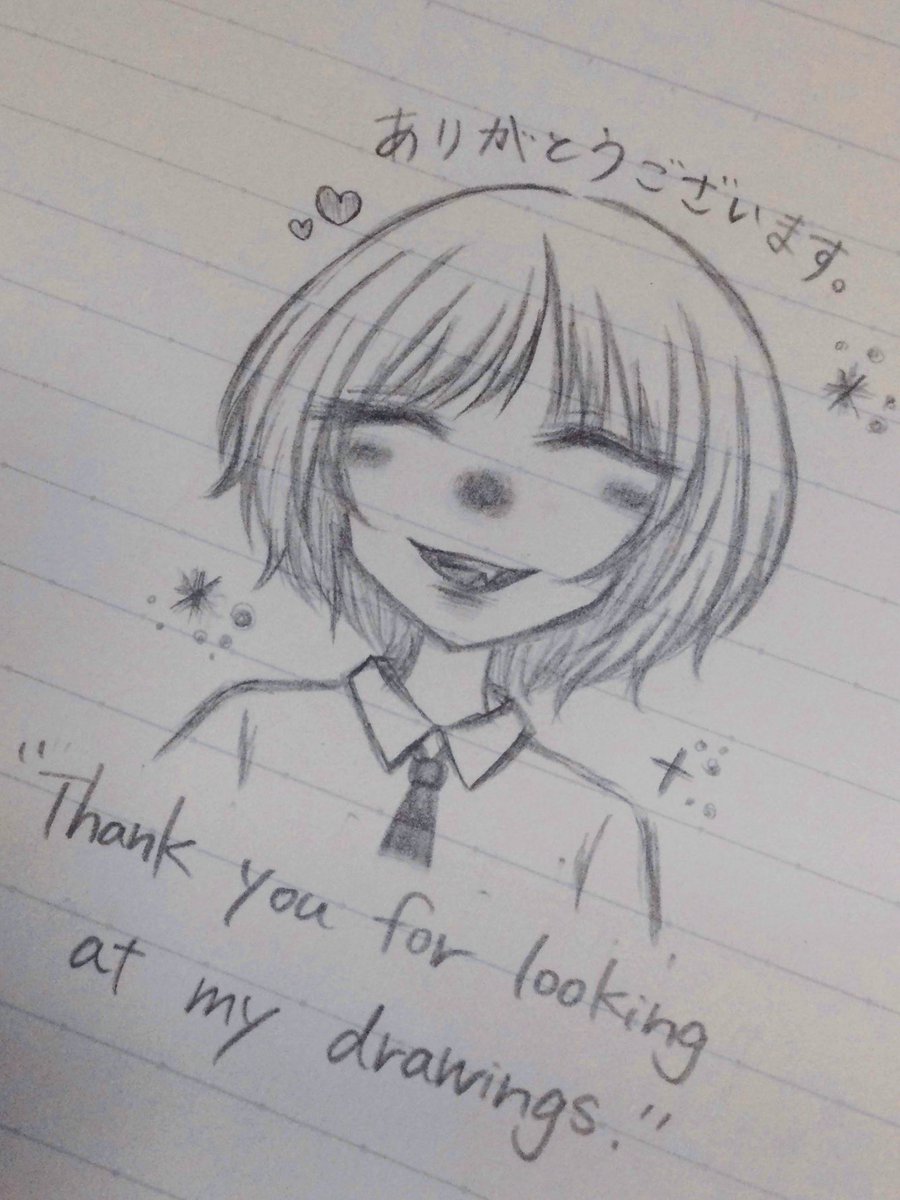 ありがとうございます。
"Thank you for looking
at my drawings."